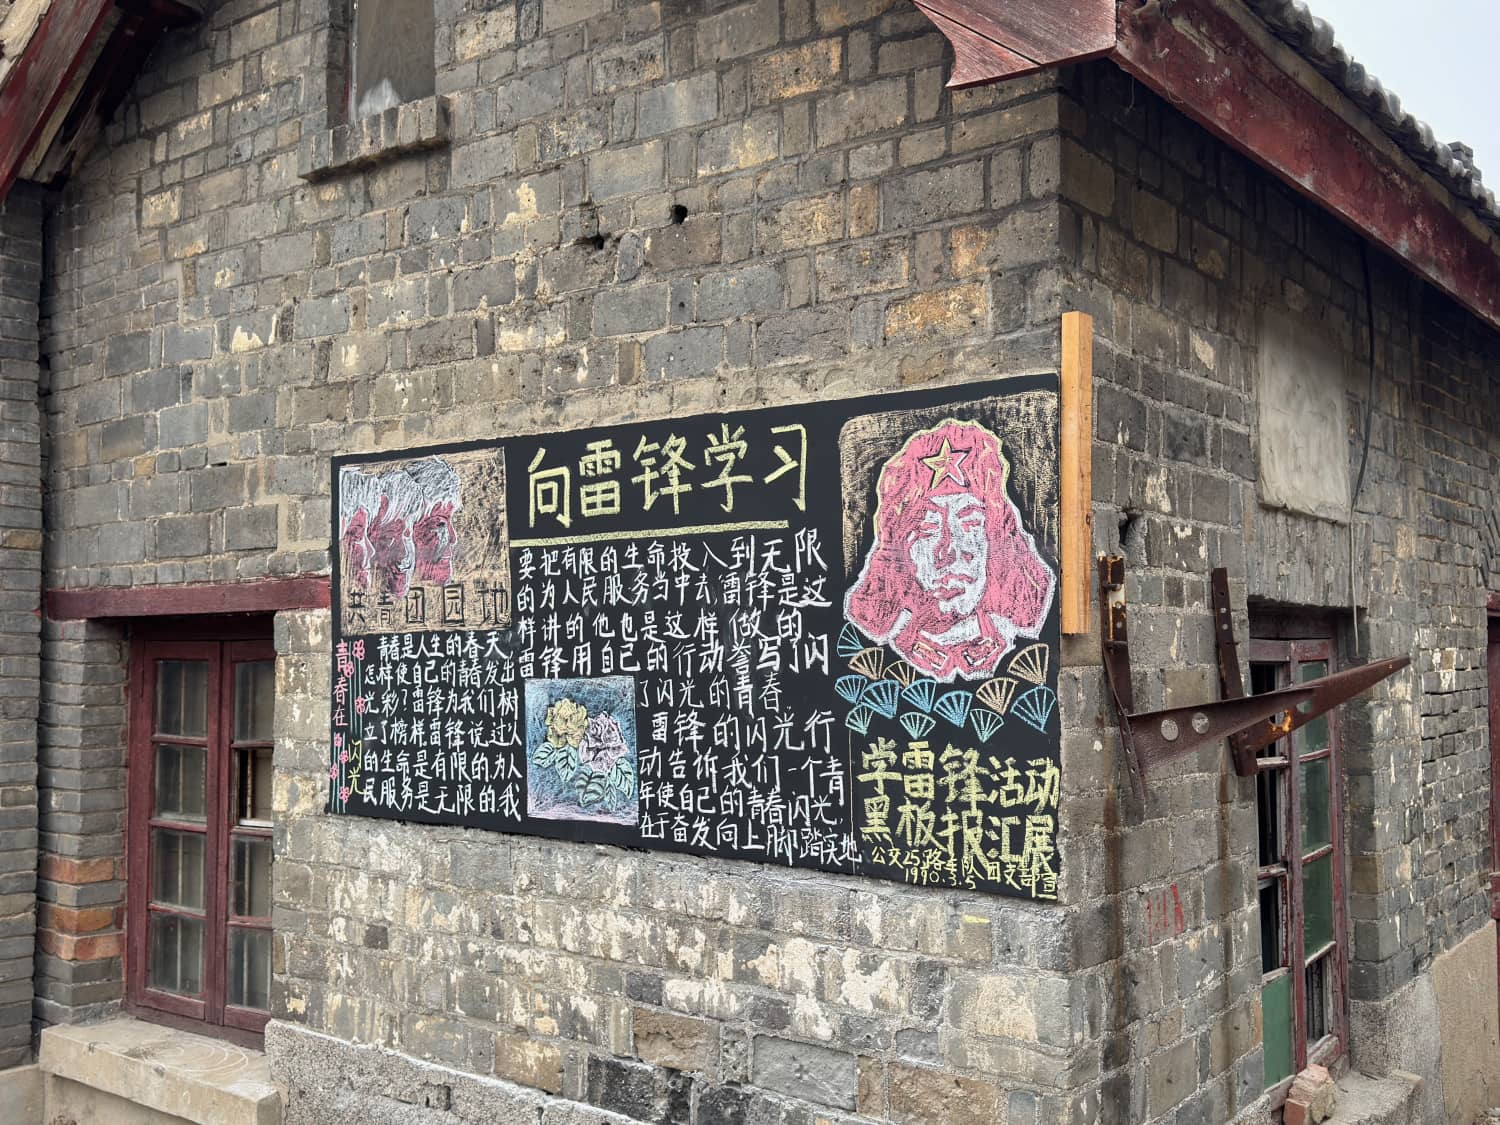 向雷锋学习
共青团园地
青春在闪光
青春是人生的春天，
怎样使自己的青春发出
光彩？雷锋为我们树
立了榜样雷锋说过人
的生命是有限的为人
民服务是无限的我
要把有限的生命投入到无限
的为人民服务当中去，雷锋是这
样讲的他也是这样做的
雷锋用自己的行动誊写了闪
了闪光的青春。
雷锋的闪光行
动告诉我们一个青
年使自己的青春闪光，
在于奋发向上脚踏实地
学雷锋活动
黑板报汇展
公交25路车队团支部宣
1990.3.5